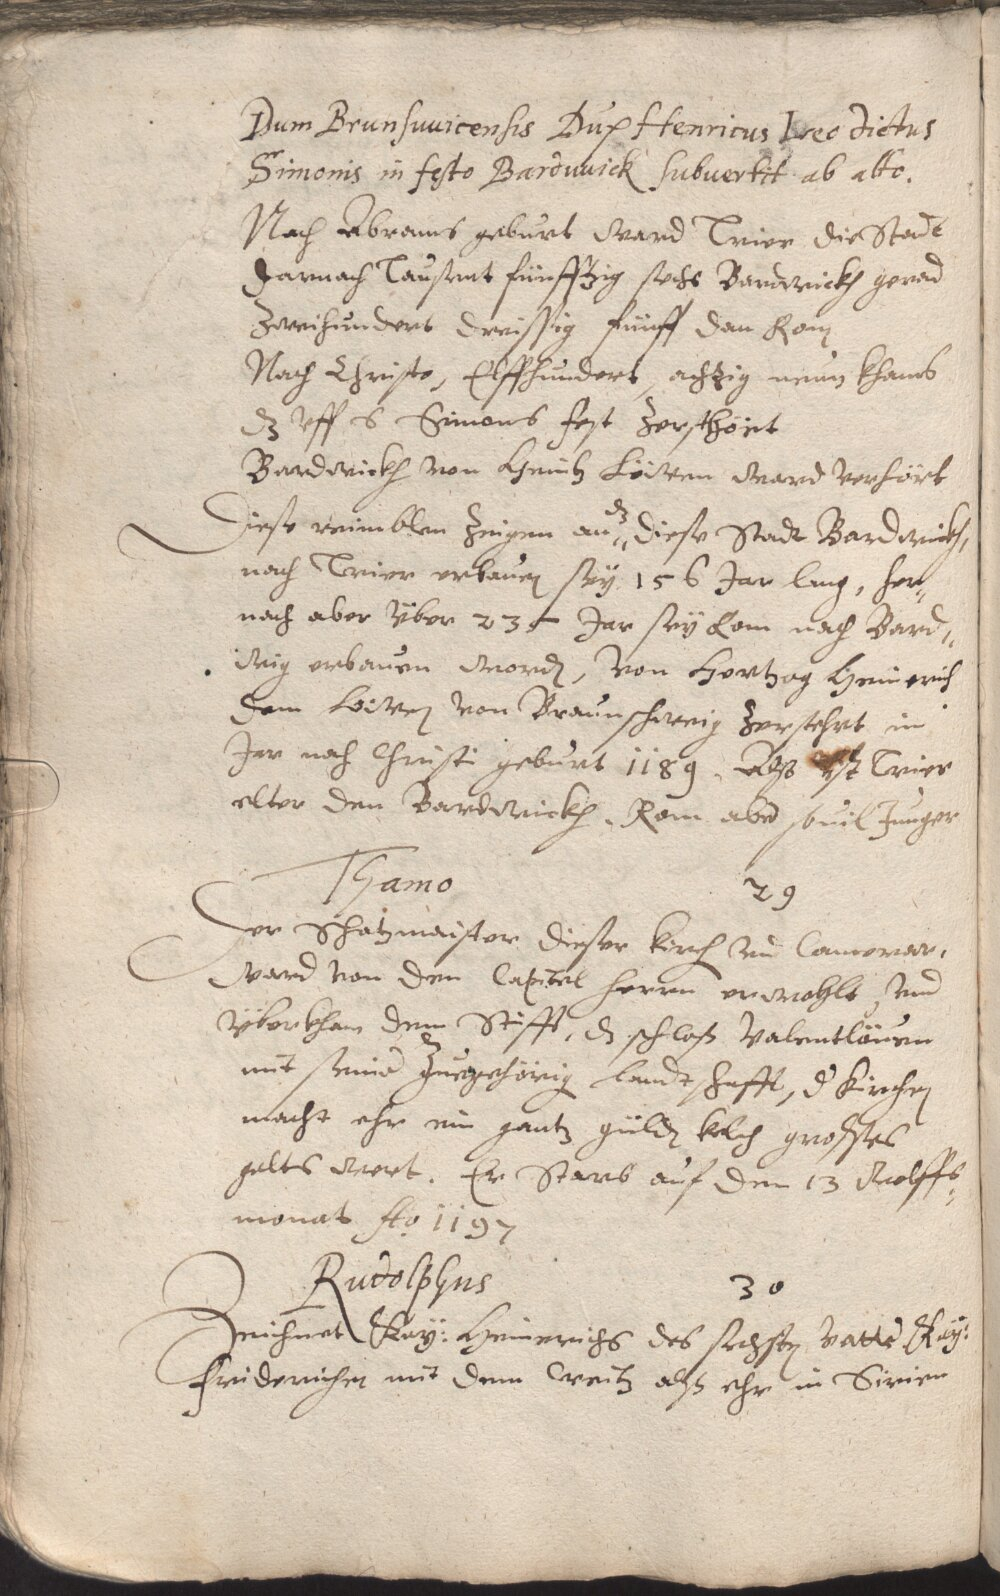 Dum Brunsuuicensis Dux Henricus Leo dictus
Simonis in festo Barduuick subuertit ab alto.
Nach Abrams geburt ward Trier die Stadt
Darnach Tausent fünfftzig sechs Bardwickh gerad
Zweihundert dreissig fünff dan Rom
Nach Christo, Elffhundert, achtzig neun khams
dz vff S Simons fest Zersthört
Bardwickh von Heintz Löwen ward verhört
Diese reimblen Zeigen an, dz diese Stadt Bardwickh,
nach Trier erbauen sey 156 Jar lang, her-
nach aber vber 235 Jar sey Rom nach Bard-
wig erbauen worden, Von Hertzog Heinerich
dem Löwen von Braunschweig Zerstehrt im
Jar nach Christi geburt 1189. Also ist Trier
elter den Bardwickh. Rom aber souil Junger
Thamo 29
Der Schatzmaister dieser kirch vnd Camerar,
ward von den Capitel herrn erwohlt, vnd
vberkham dem Stifft, dz schloss Valentlöuen
mit seiner Zuegehörig landtschafft, der kirchen
macht ehr ein gantz gülden kelch grosses
gelts wert. Er Starb auf den 13 Wolffs-
monat Ao 1197
Rudolphus 30
Zeichnet Kay: Heinerichs des sechsten vatter Kay:
friderichen mit dem Creutz alss ehr in Sirien